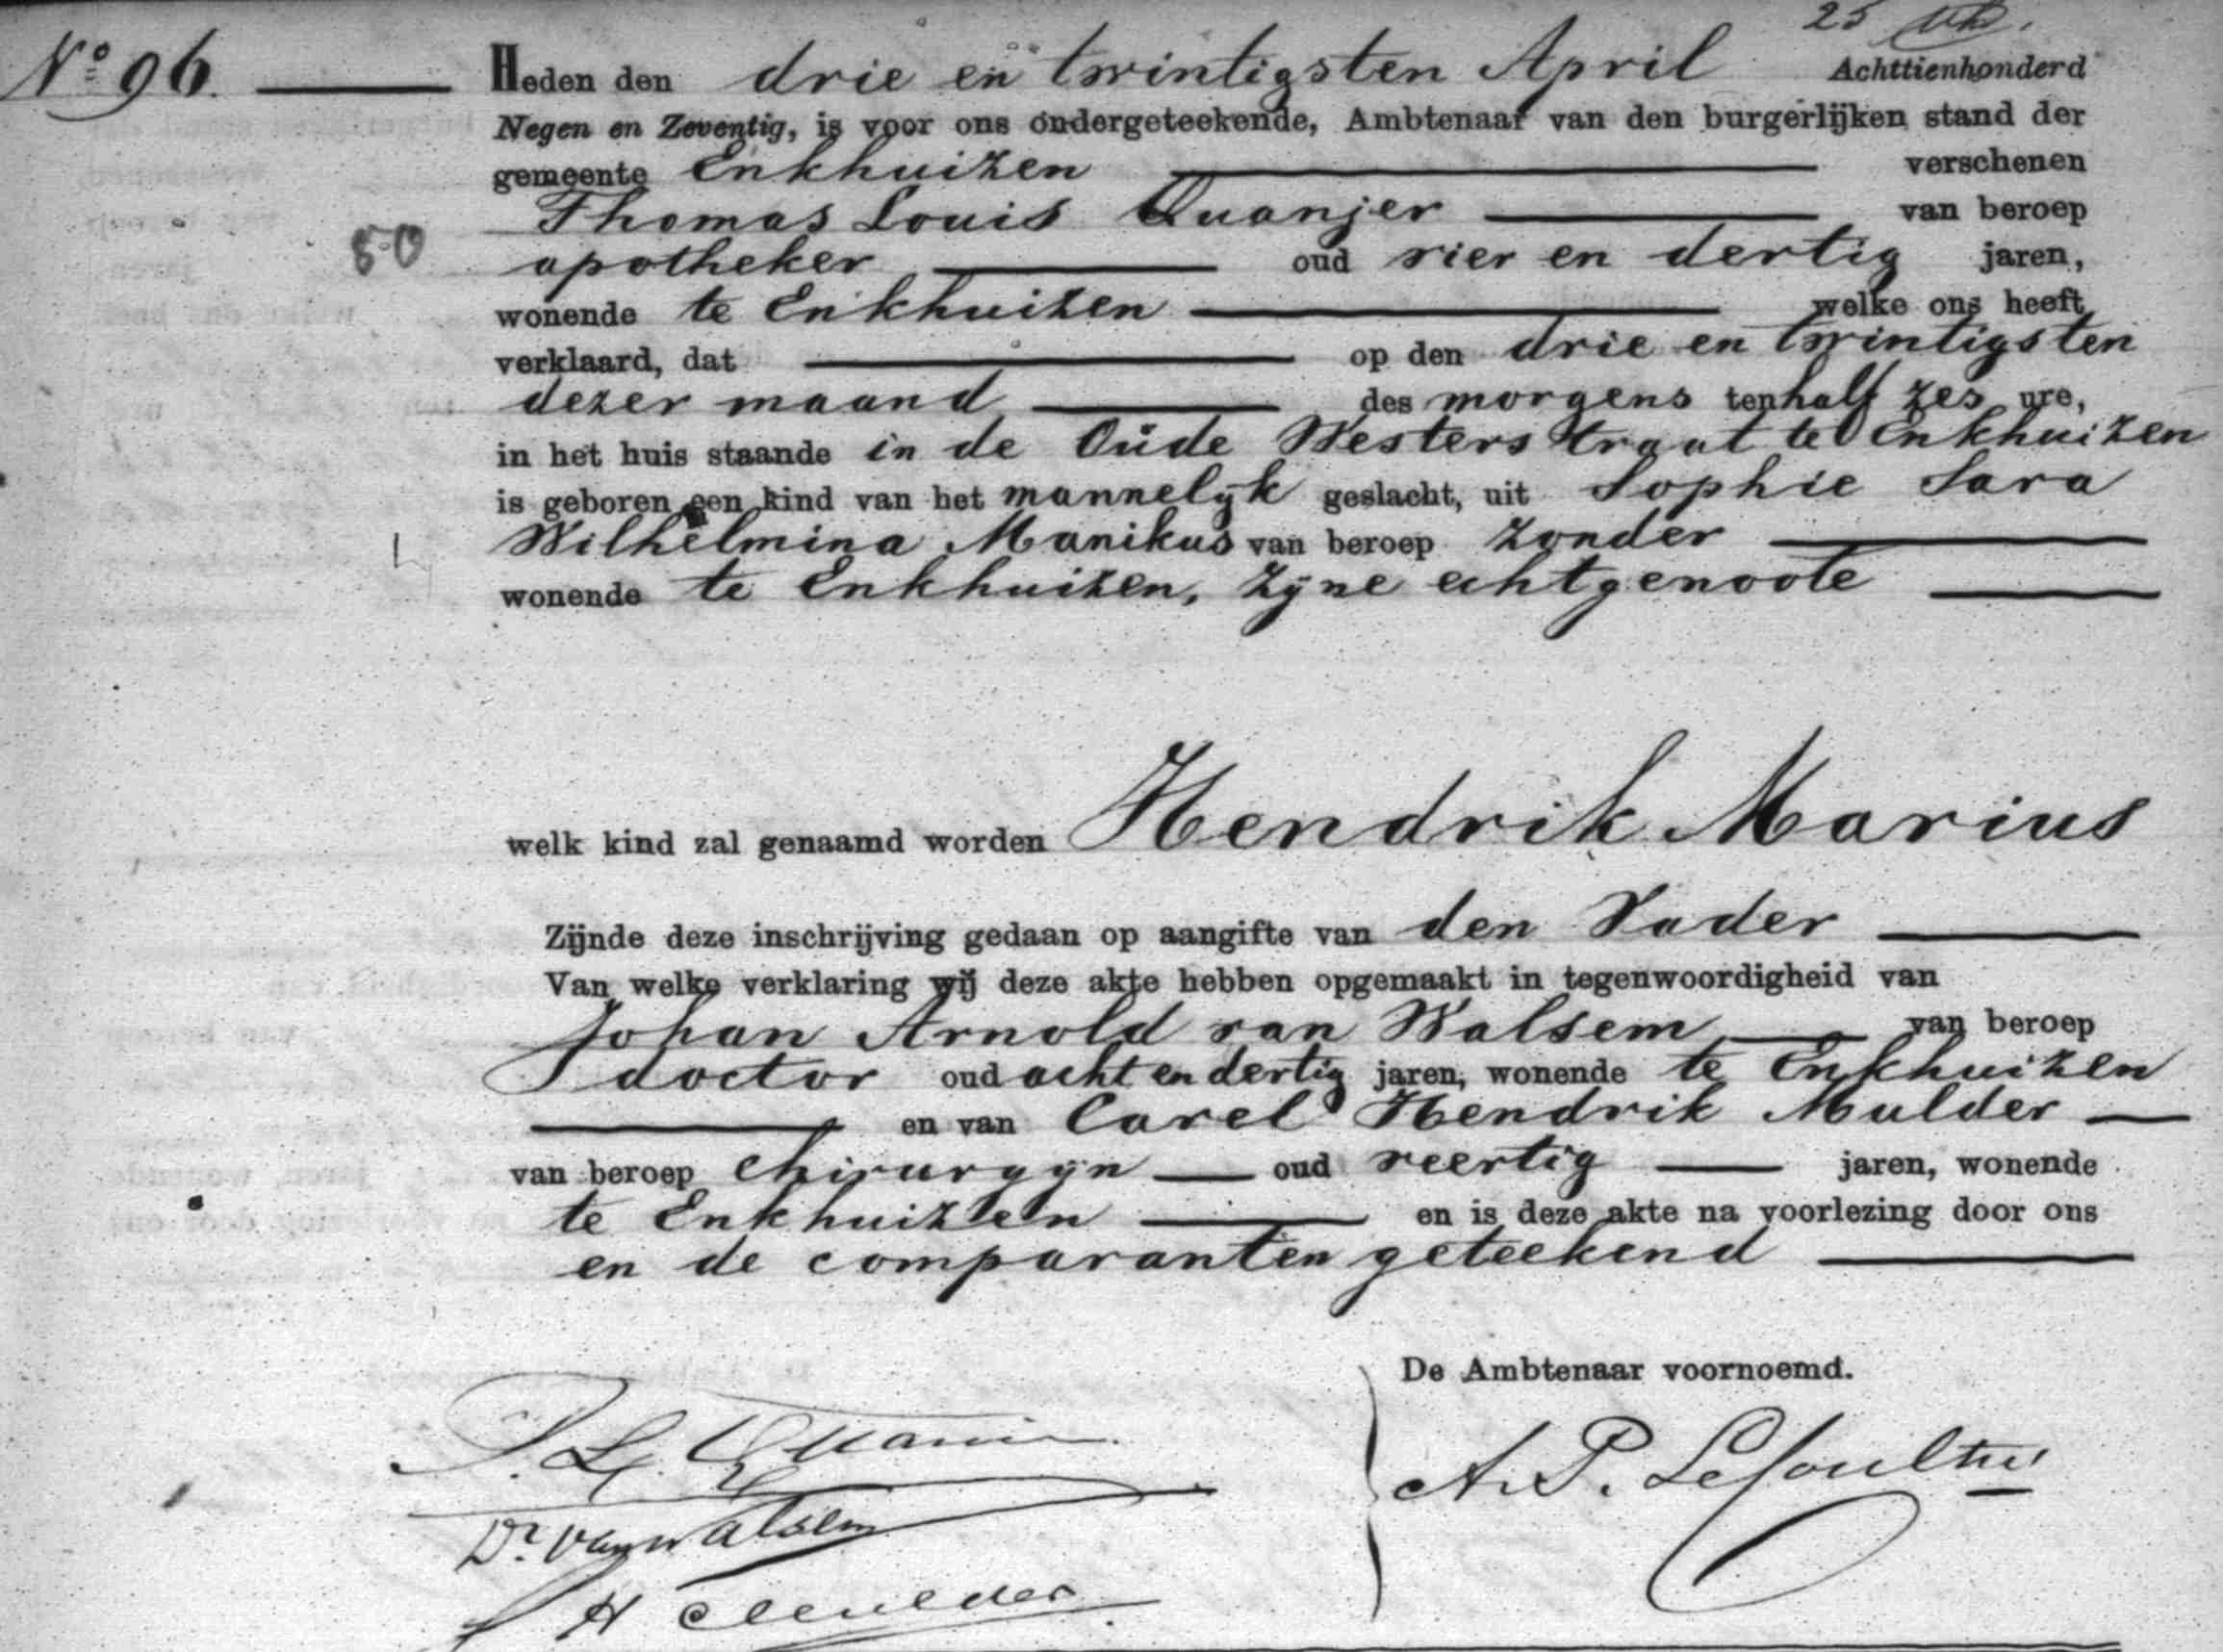 25
Nº 96. Heden den drie en twintigsten April Achttienhonderd
Negen en Zeventig, is voor ons ondergeteekende, Ambtenaar van den burgerlijken stand der
gemeente Enkhuizen verschenen
Thomas Louis Quanjer van beroep
50 apotheker oud vier en dertig jaren,
wonende te Enkhuizen welke ons heeft
verklaard, dat op den drie en twintigsten
dezer maand des morgens ten half zes ure,
in het huis staande in de Oude Westerstraat te Enkhuizen
is geboren een kind van het mannelijk geslacht, uit Sophie Sara
Wilhelmina Manikus van beroep zonder
wonende te Enkhuizen, zijne echtgenoote
welk kind zal genaamd worden Hendrik Marius
Zijnde deze inschrijving gedaan op aangifte van den Vader
Van welke verklaring wij deze akte hebben opgemaakt in tegenwoordigheid van
Johan Arnold van Walsem van beroep
doctor oud acht en dertig jaren, wonende te Enkhuizen
en van Carel Hendrik Mulder
van beroep chirurgijn oud veertig jaren, wonende
te Enkhuizen en is deze akte na voorlezing door ons
en de comparanten geteekend
De Ambtenaar voornoemd.
T. L. Quanjer
A. P. LeCoultre
Dr. van Walsem
H Mulder